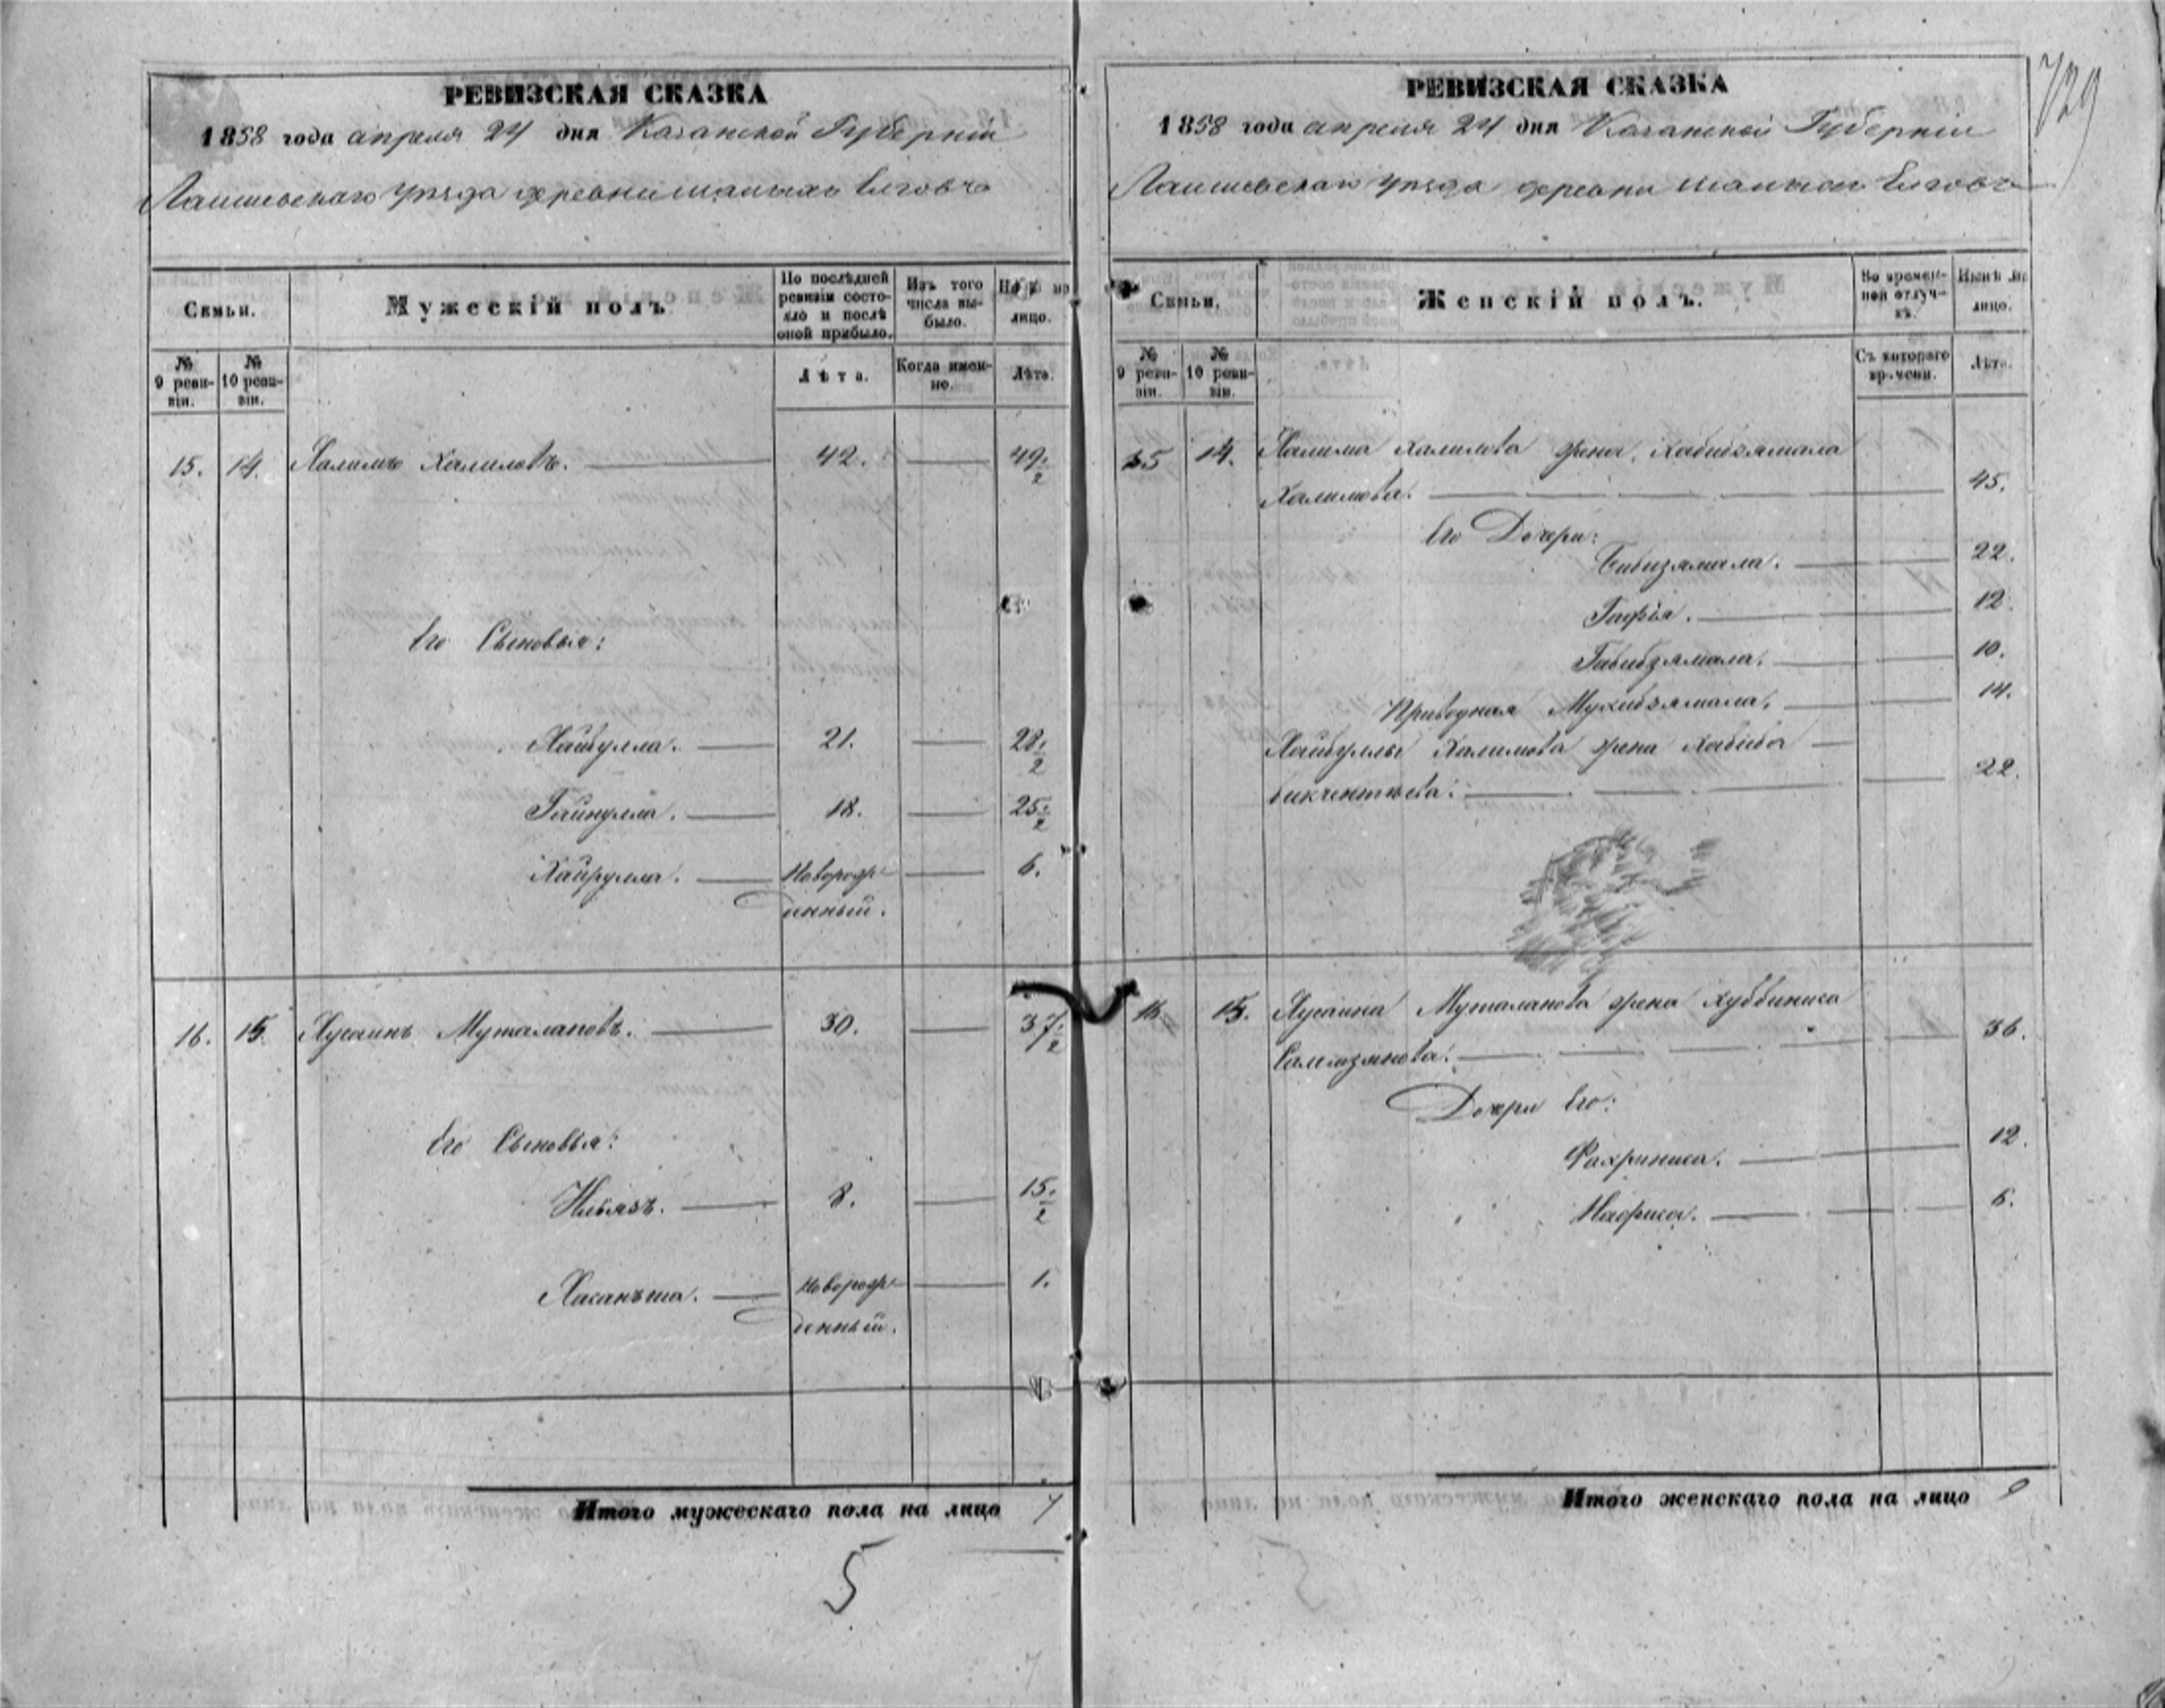 729
РЕВИЗСКАЯ СКАЗКА
1858 года апреля 24 дня Казанской Губерніи
Лаишевскаго уѣзда деревни
Семьи.
Мужескій полъ
По послѣдней ревизіи состояло и послѣ оной прибыло.
Изъ того числа выбыло.
лицо.
№ 9 ревизіи.
№ 10 ревизіи.
Лѣта.
Когда именно.
Лѣта.
15. 14. Халимъ Халиловъ. 42. 49.
2
Его Сыновья:
Хайбулла. 21. 28.
2
Гайнулла. 18. 25.
2
Хайрулла. Новорож-
денный. 6.
16. 15. Хусаинъ Муталаповъ. 30. 37.
2
Его Сыновья:
Ильязъ. 8. 15.
2
Хасанъша. Новорож-
денный. 1.
Итого мужескаго пола на лицо 7
5
РЕВИЗСКАЯ СКАЗКА
1858 года апреля 24 дня Казанской Губерніи
Лаишевскаго уѣзда деревни
Семьи.
Женскій полъ.
Во временной отлучкѣ.
Нынѣ на лицо.
№ 9 ревизіи.
№ 10 ревизіи.
Съ котораго времени.
Лѣта.
15 14. Халима Халилова жена Хабибзямала
Халилова. 45.
Его Дочери:
Бибизямала. 22.
Гафія. 12.
Габибзямала. 10.
Приводная Мухибзямала. 14.
Хайбуллы Халимова жена Хабиба
Бикчентѣева. 22.
16. 15. Хусаина Муталапова жена Хуббиниса
36.
Дочери Его:
Фахриниса. 12.
Нафиса. 6.
Итого женскаго пола на лицо 9